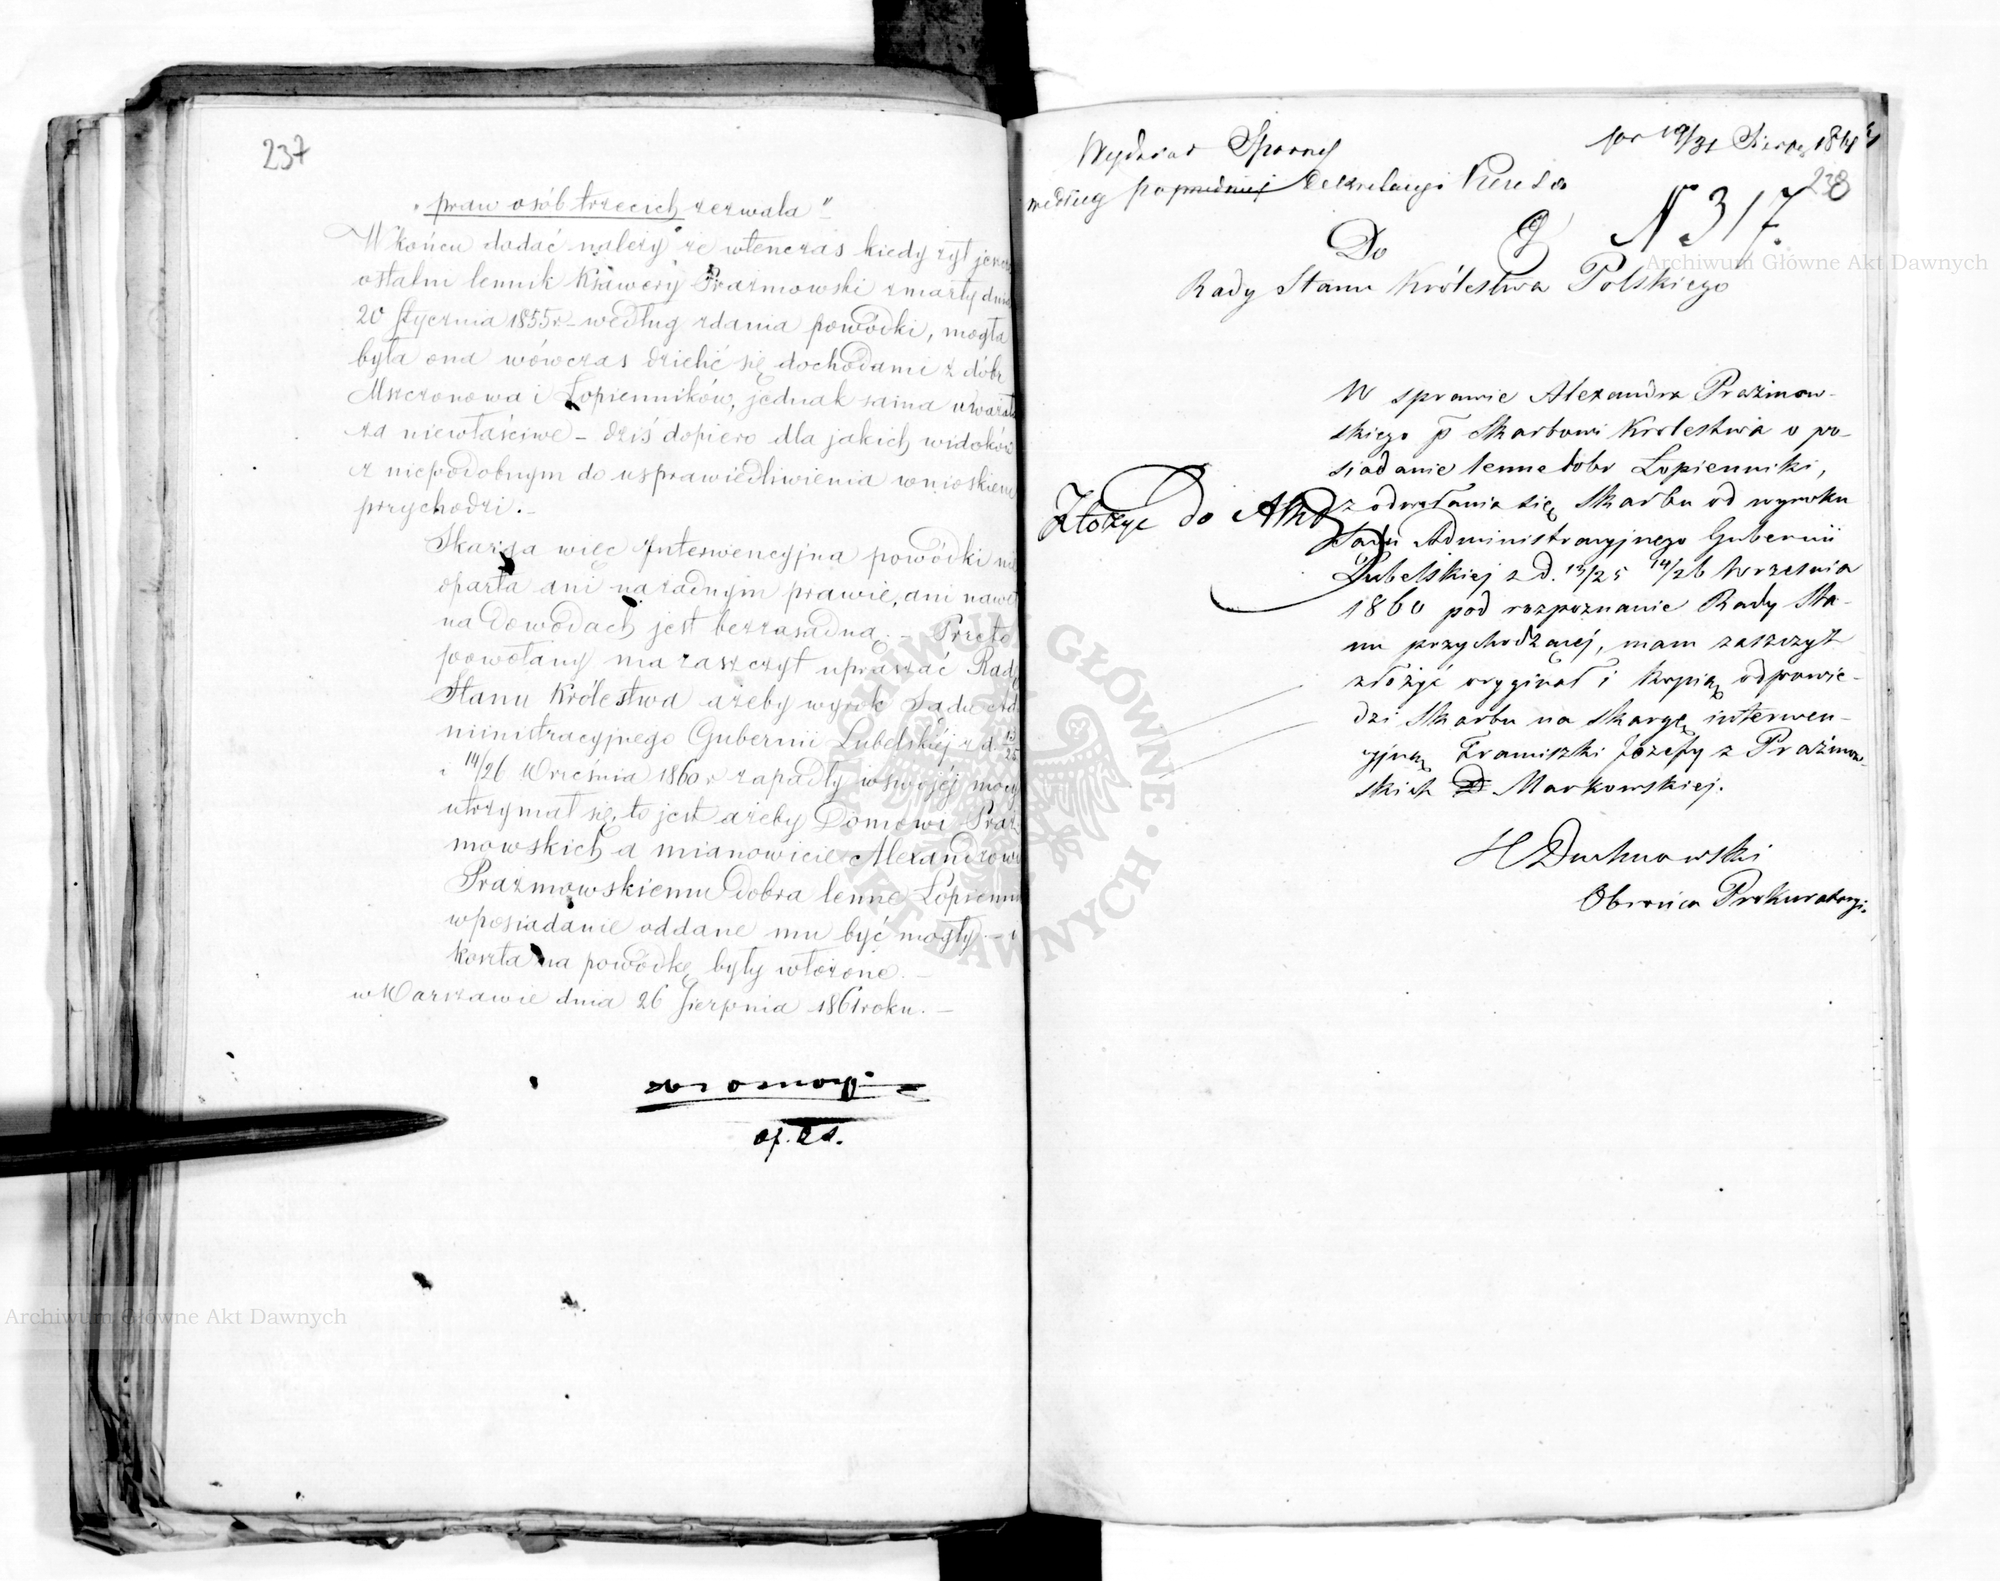 237
„praw osób trzecich zezwala"
W końcu dodać należy że wtenczas kiedy żył jeszcze
ostatni lennik Ksawery Prażmowski zmarły dnia
20 Stycznia 1855 r – według zdania powódki, mogła
była ona wówczas dzielić się dochodami z dóbr
Mszczonowa i Łopienników, jednak sama uważała
za niewłaściwe – dziś dopiero dla jakich widoków
z niepodobnym do usprawiedliwienia wnioskiem
przychodzi. –
Skarga więc Interwencyjna powódki nie
oparta ani na żadnym prawie, ani nawet
na dowodach jest bezzasadną. – Przeto
powołany ma zaszczyt upraszać Rady
Stanu Królestwa ażeby wyrok Sądu Ad
ministracyjnego Gubernii Lubelskiej z d. 13/25
i 14/26 Września 1860 r zapadły w swojej mocy
utrzymał się, to jest ażeby Domowi Praż
mowskich a mianowicie Alexandrowi
Prażmowskiemu Dobra lenne Łopienni
w posiadanie oddane mu być mogły – i
koszta na powódkę były włożone. –
w Warszawie dnia 26 Sierpnia 1861 roku. –
Wydział Sporny
według poprzedniej
19/31 Sierp 1861
238
N 317.
Do
Rady Stanu Królestwa Polskiego
W sprawie Alexandra Prażmow-
skiego p Skarbowi Królestwa o po-
siadanie lenne dóbr Łopienniki,
z odwołania się Skarbu od wyroku
Złożyć do Akt
Sądu Administracyjnego Gubernii
Lubelskiej z d. 13/25 14/26 Września
1860 pod rozpoznanie Rady Sta-
nu przychodzącej, mam zaszczyt
złożyć oryginał i kopią odpowie-
dzi Skarbu na skargę interwen-
cyjną Franciszki Józefy z Prażmow-
skich Markowskiej.
H Duchnowski
Obrońca Prokuratoryi.
Archiwum Główne Akt Dawnych
Archiwum Główne Akt Dawnych
ARCHIWUM GŁÓWNE AKT DAWNYCH